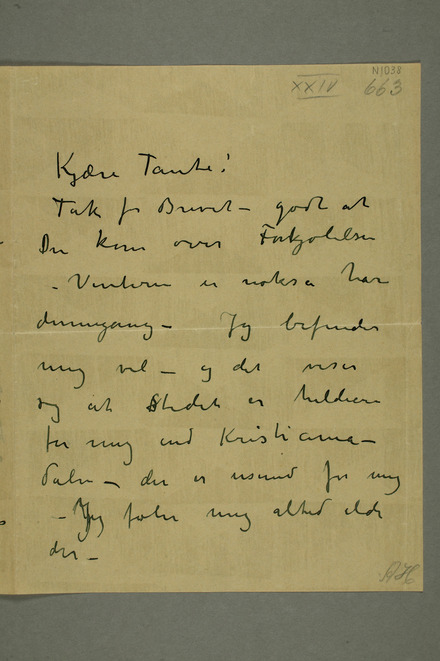 N1038
XXIV 663
Kjære Tante!
Tak for Brevet – godt at
Du kom over Forkjølelsen
– Vinteren er noksa har
denne gang – Jeg befinder
mig vel – og det viser
sig at Stedet er heldiere
for mig end Kristiania –
dalen – der er usund for mig
– Jeg føler mig altid ilde
der –